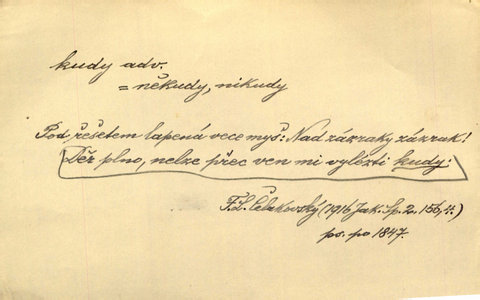 kudy adv.
= někudy, nikudy
Pod řešetem lapená vece myš: Nad zázraky zázrak!
Děr plno, nelze přec ven mi vylézti kudy.
Fr. L. Čelakovský (1916 Jak. Sp. 2. 156, 4.)
ps. po 1847.